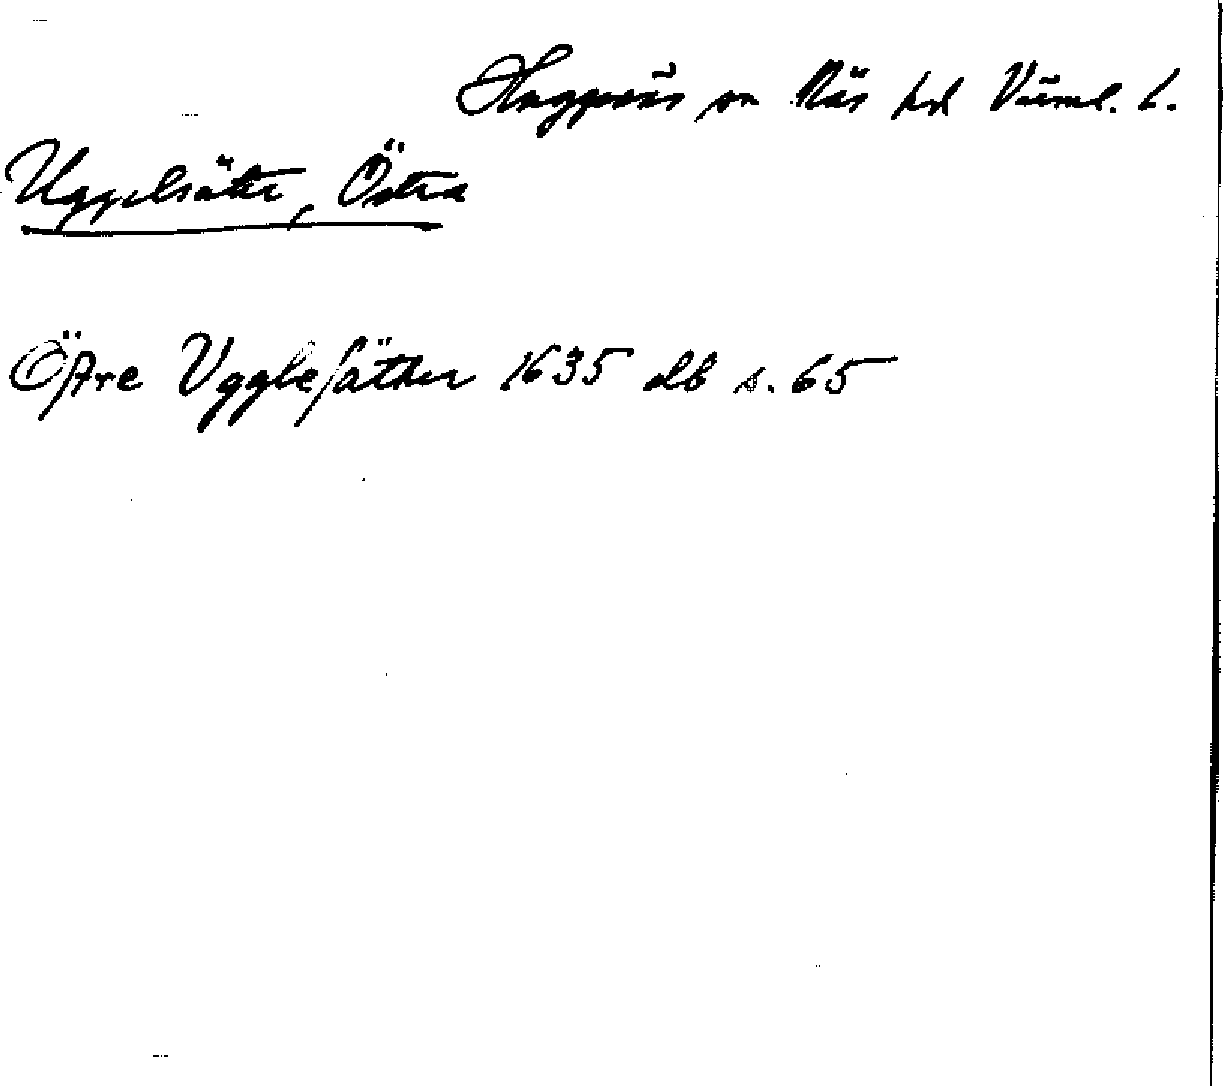 Huggenäs sn Näs hd Värml. l.
Uggelsäter, Östra
Öftre Vgglesäther 1635 db s. 65